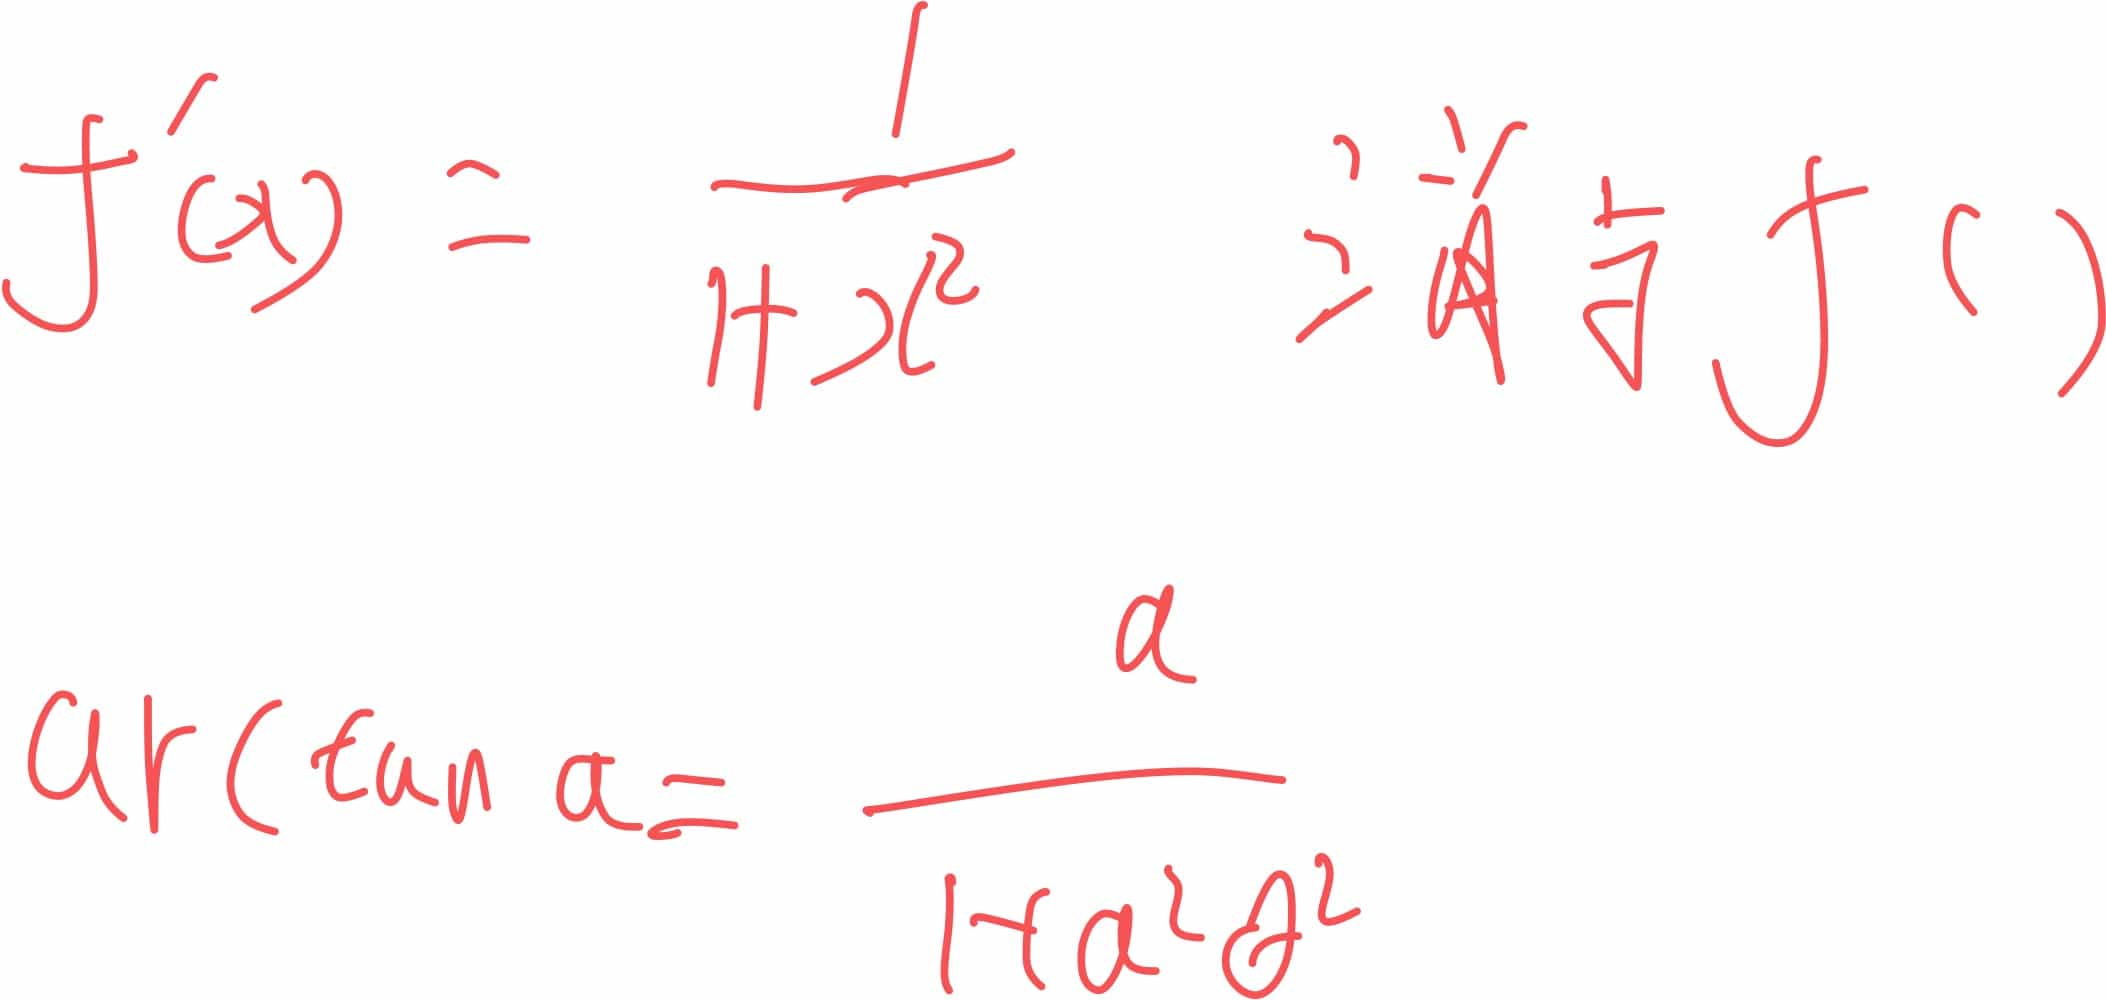 f'(x) = 1/(1+x²) 满足 f( )
arctan a = a/(1+a²θ²)